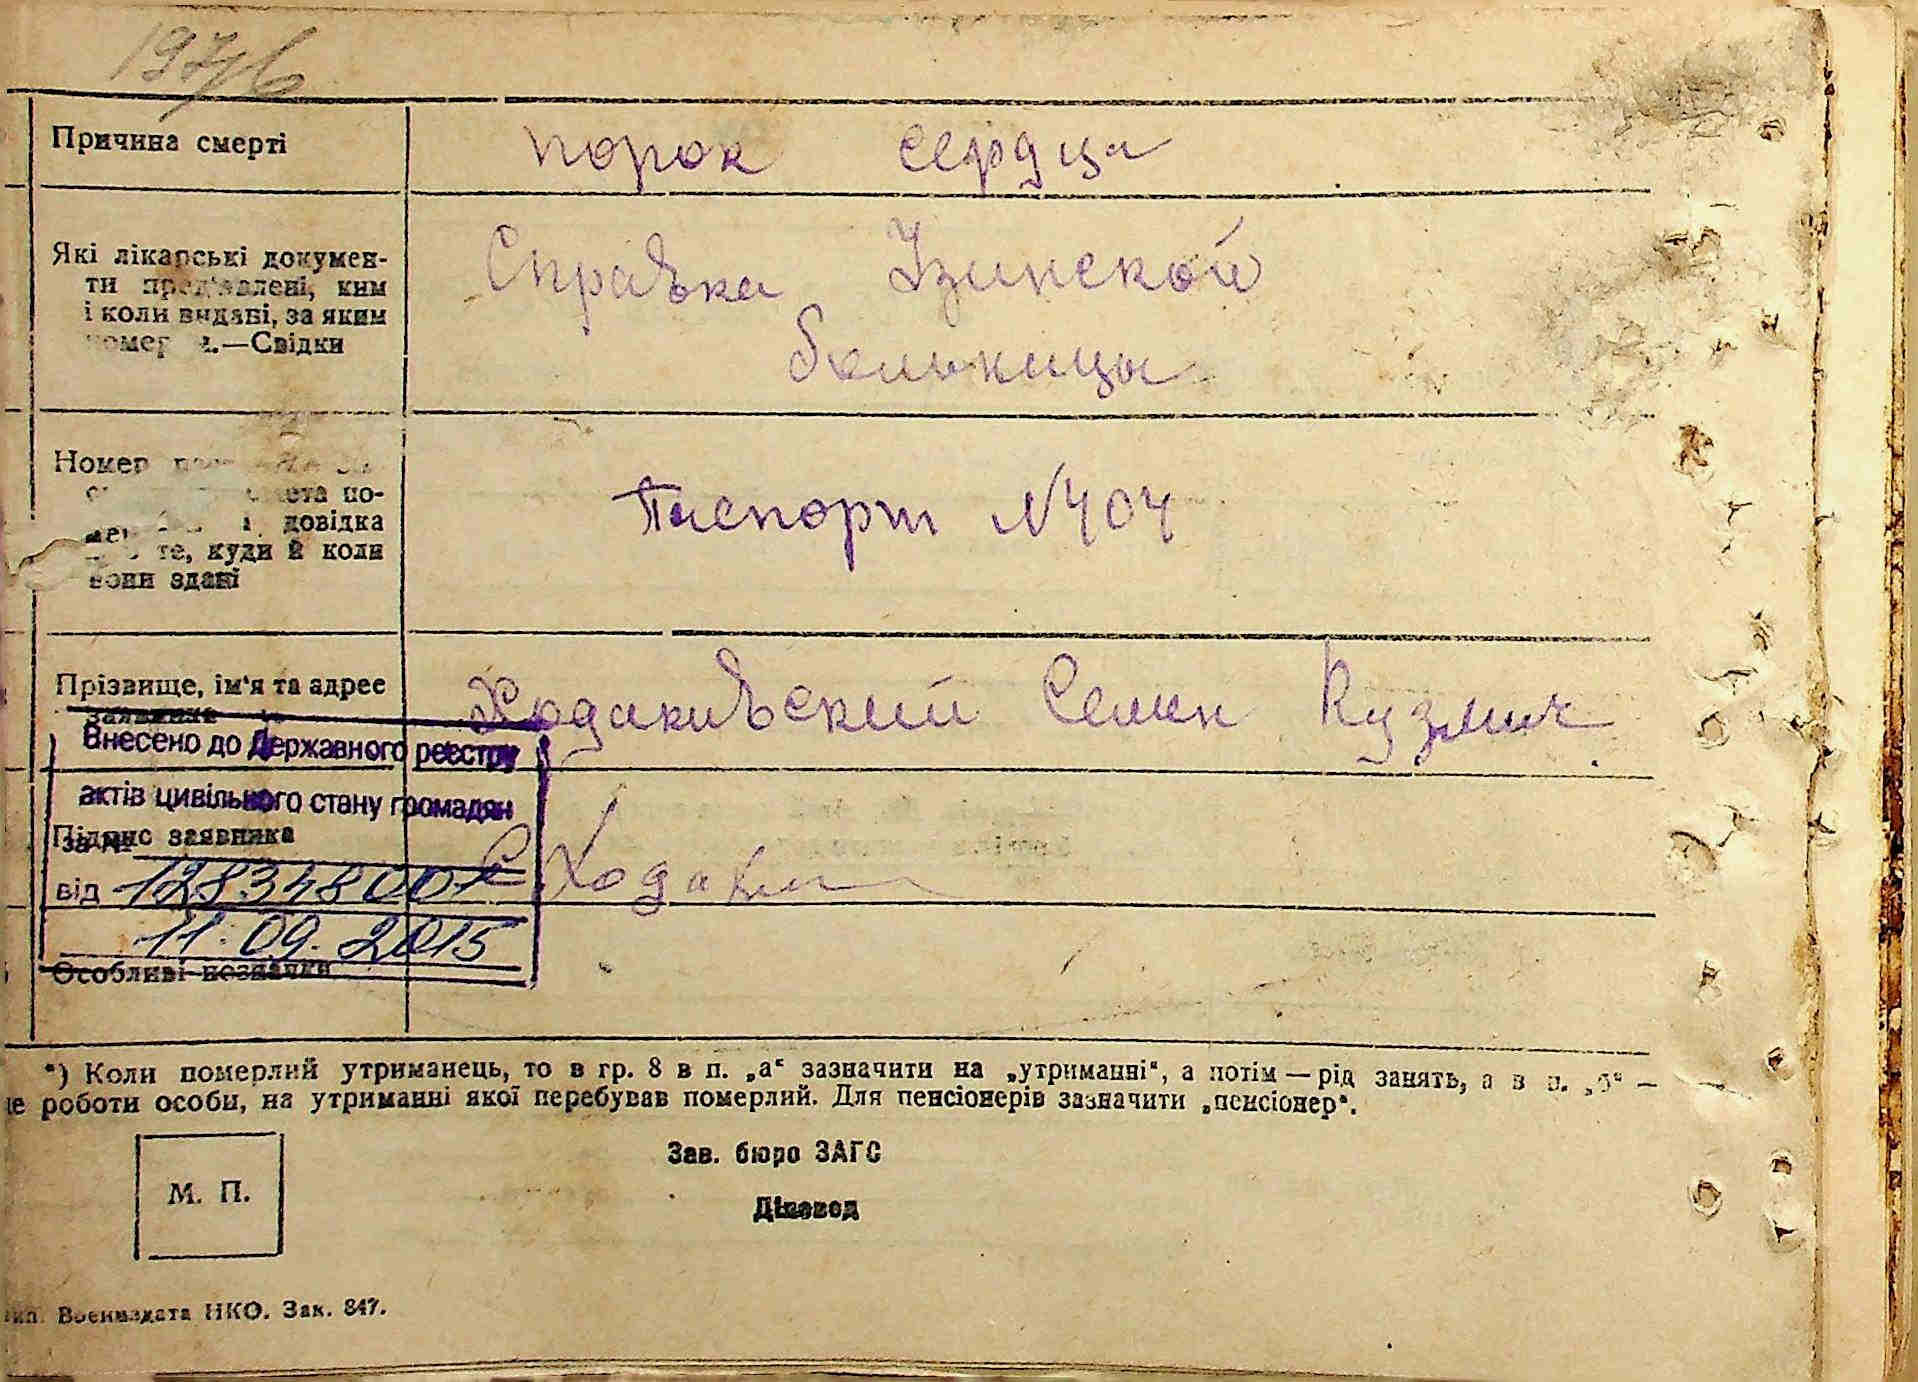 Причина смерті
порок сердца
Які лікарські докумен-
ти пред'явлені, ким
і коли видані, за яким
номер .—Свідки
Справка Узинской
больницы
Номер
по-
довідка
те, куди й коли
вони здані
Паспорт №404
Прізвище, ім'я та адрес
заявника
Ходакивский Семен Кузмич
Внесено до Державного реєстру
актів цивільного стану громадян
Підпис заявника
за №
від 12834800
11.09.2015
С. Ходаки
Особливі позначки
*) Коли померлий утриманець, то в гр. 8 в п. „а“ зазначити на „утриманні“, а потім — рід занять, а в п. „б“ —
це роботи особи, на утриманні якої перебував померлий. Для пенсіонерів зазначити „пенсіонер“.
Зав. бюро ЗАГС
М. П.
Діловод
Тип. Воениздата НКО. Зак. 847.